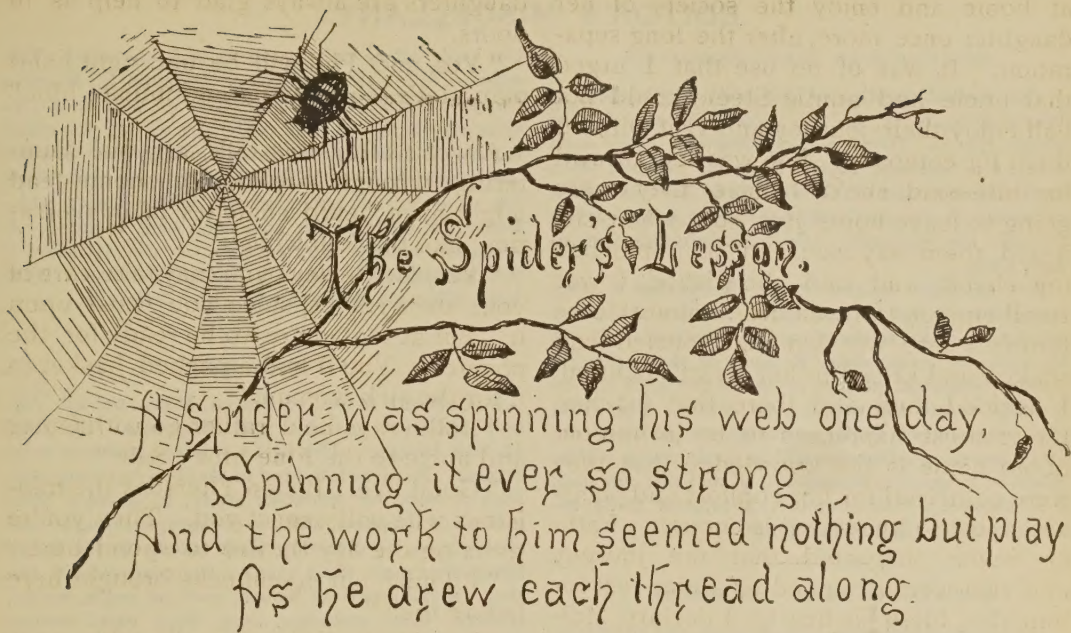 The Spider's Lesson.
A spider was spinning his web one day,
Spinning it ever so strong
And the work to him seemed nothing but play
As he drew each thread along.